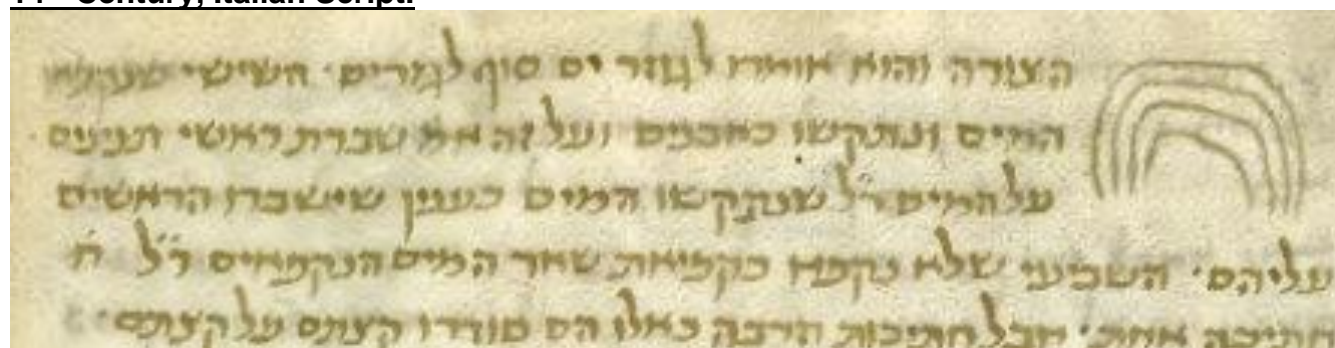 Century, Italian Script.
הצורה והוא אומרו לגוזר ים סוף לגזרים· הששי שנקפאו
המים ונתקשו כאבנים ועל זה אמ שברת ראשי תנינים
על המים ר״ל שנתקשו המים כענין שישברו הראשים
עליהם· השביעי שלא נקפא כקפיאת שאר המים הנקפאים ר״ל
חתיכה אחת· אבל חתיכות הרבה כאלו הם סודרו קצתם על קצתם